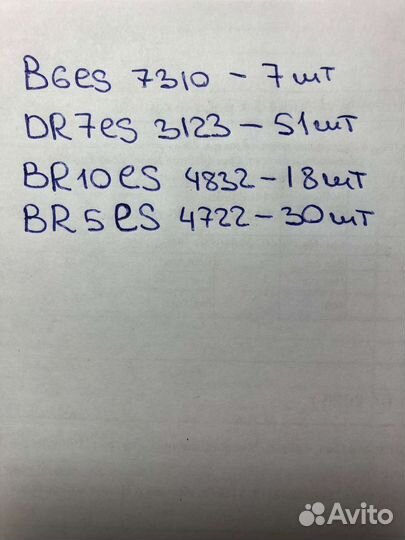 B6es 7310 - 7шт
DR7es 3123 - 51шт
BR10es 4832 - 18шт
BR5es 4722 - 30шт
Avito